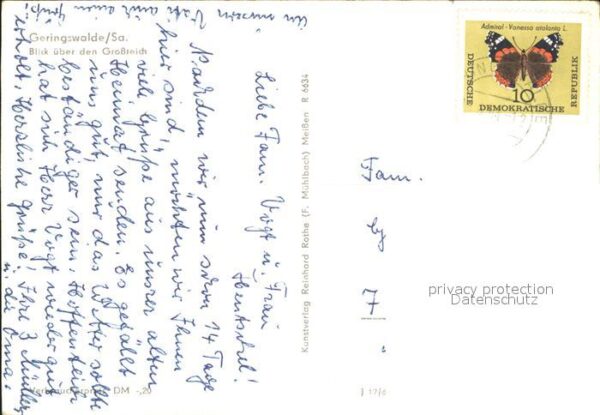 Geringswalde/Sa.
Blick über den Großteich
Liebe Fam. Vogt u. Frau
Hentschel!
Nachdem wir nun schon 14 Tage
hier sind, möchten wir Ihnen
viele Grüße aus unserer alten
Heimat senden. Es gefällt
uns gut, nur das Wetter sollte
beständiger sein. Hoffentlich
hat sich Herr Vogt wieder gut
erholt. Herzliche Grüße! Ihre 3 Müller
u. die Oma.
Kunstverlag Reinhard Rothe (F. Mühlbach) Meißen R 6634
Verbraucherpreis: DM -,20
J 12/6
Admiral - Vanessa atalanta L.
DEUTSCHE
DEMOKRATISCHE
REPUBLIK
10
Fam.
7
privacy protection
Datenschutz